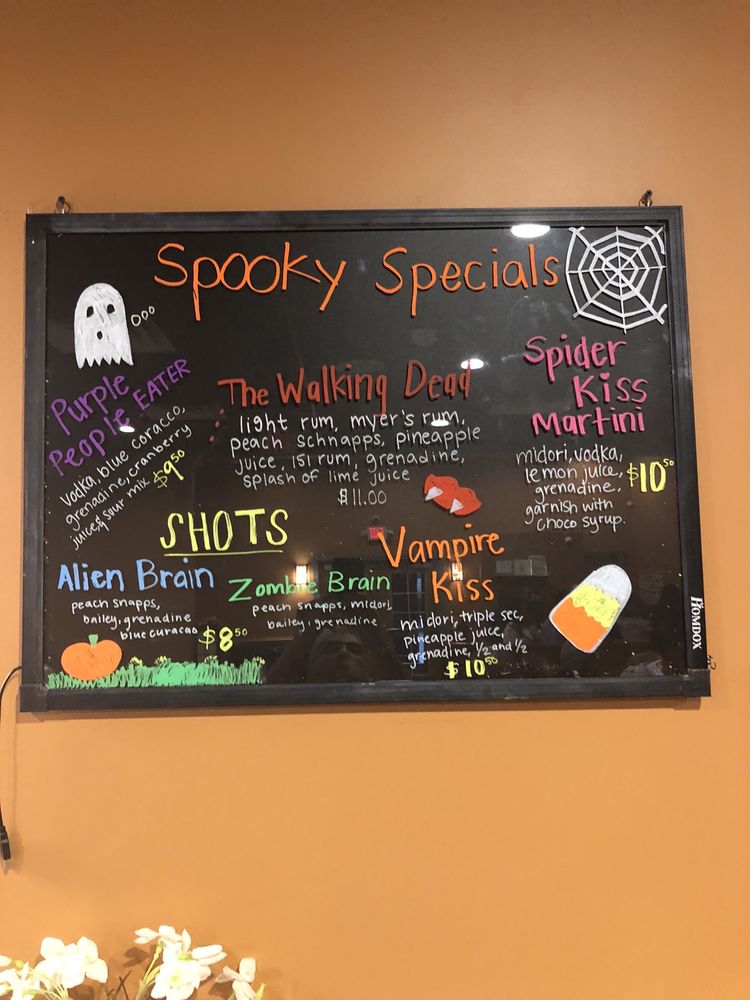 Spooky Specials
ooo
Purple
People EATER
Vodka, blue coracco,
grenadine, cranberry
juice, sour mix $9.50
The Walking Dead
light rum, myer's rum,
peach schnapps, pineapple
juice, 151 rum, grenadine,
splash of lime juice
$11.00
Spider
Kiss
Martini
midori, vodka,
lemon juice, $10.50
grenadine,
garnish with
choco syrup.
SHOTS
Alien Brain
peach snapps,
bailey, grenadine
blue curacao $8.50
Zombie Brain
peach snapps, midori,
bailey, grenadine
Vampire
Kiss
midori, triple sec,
pineapple juice,
grenadine, 1/2 and 1/2
$10.50
HOMDOX